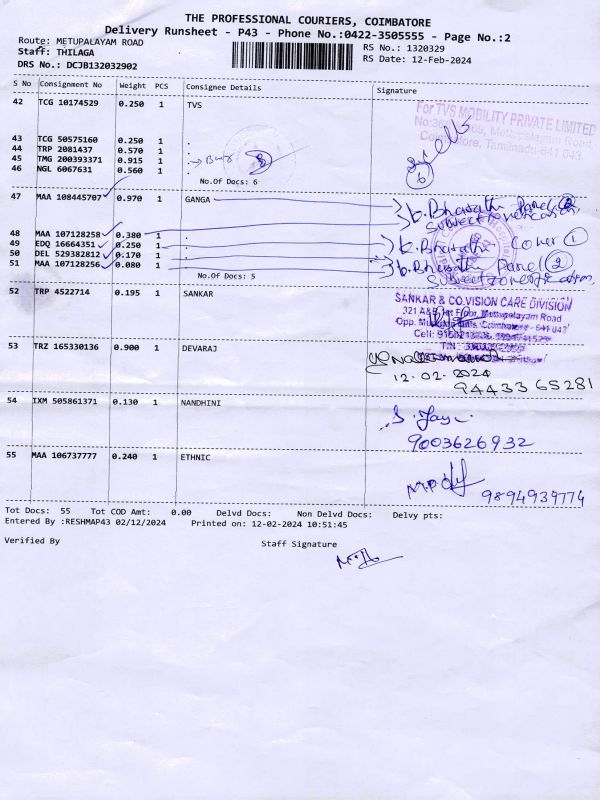 THE PROFESSIONAL COURIERS, COIMBATORE
Delivery Runsheet - P43 - Phone No.:0422-3505555 - Page No.:2
Route: METUPALAYAM ROAD
RS No.: 1320329
Staff: THILAGA
RS Date: 12-Feb-2024
DRS No.: DCJB132032902
S No Consignment No Weight PCS Consignee Details Signature
42 TCG 10174529 0.250 1 TVS
For TVS MOBILITY PRIVATE LIMITED
Mettupalayam Road,
Coimbatore, Tamilnadu-641 043.
43 TCG 50575160 0.250 1 .
44 TRP 2081437 0.570 1 .
45 TMG 200393371 0.915 1 .
46 NGL 6067631 0.560 1 .
6
No.Of Docs: 6
47 MAA 108445707 0.970 1 GANGA
b.Bharathi Panel
48 MAA 107128258 0.380 1 .
49 EDQ 16664351 0.250 1 .
b.Bharathi Cover 1
50 DEL 529382812 0.170 1 .
51 MAA 107128256 0.080 1 .
b.Bharathi Panel 2
No.Of Docs: 5
52 TRP 4522714 0.195 1 SANKAR
SANKAR & CO.VISION CARE DIVISION
321 A&B, 1st Floor, Mettupalayam Road
Coimbatore - 641 043
53 TRZ 165330136 0.900 1 DEVARAJ
12.02.2024
94433 65281
54 IXM 505861371 0.130 1 NANDHINI
9003626932
55 MAA 106737777 0.240 1 ETHNIC
9894939774
Tot Docs: 55 Tot COD Amt: 0.00 Delvd Docs: Non Delvd Docs: Delvy pts:
Entered By :RESHMAP43 02/12/2024 Printed on: 12-02-2024 10:51:45
Verified By Staff Signature